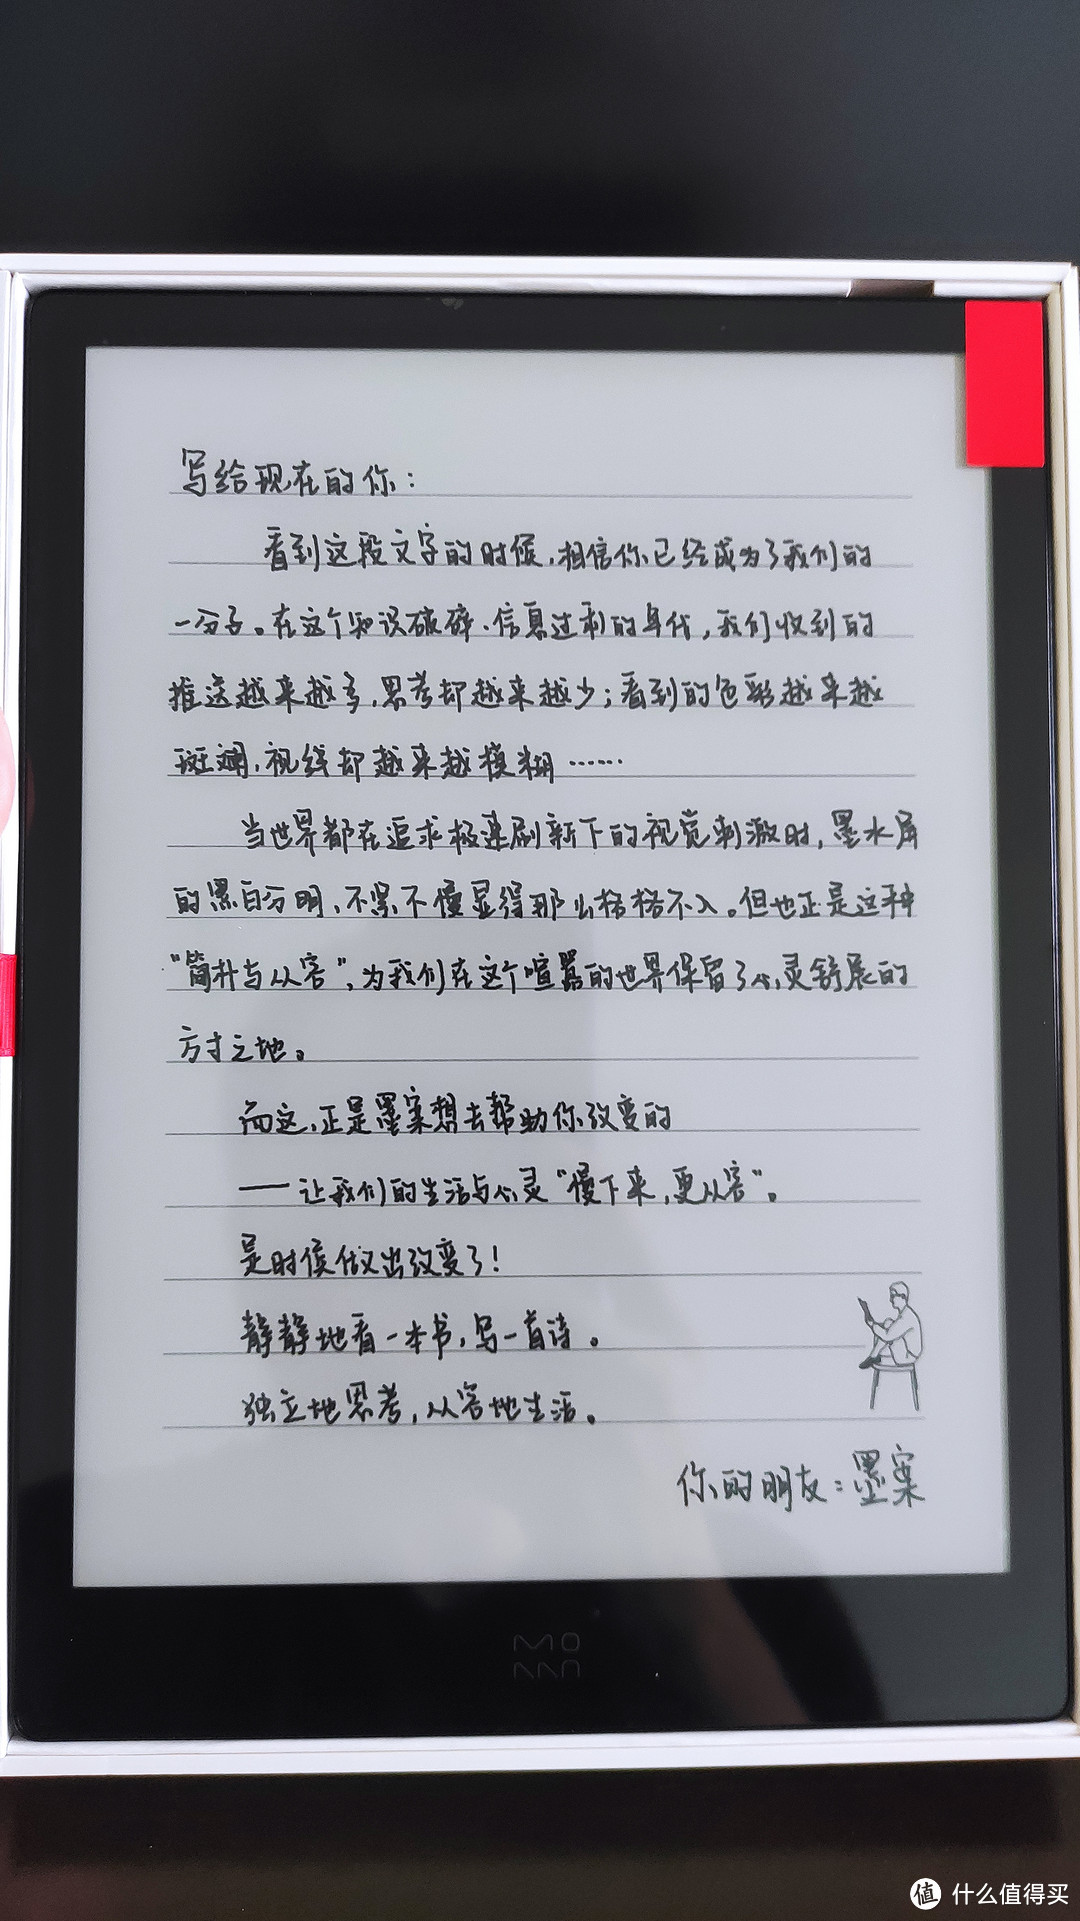 写给现在的你：
看到这段文字的时候，相信你已经成为了我们的
一分子。在这个知识破碎、信息过剩的年代，我们收到的
推送越来越多，思考却越来越少；看到的色彩越来越
斑斓，视线却越来越模糊……
当世界都在追求极速刷新下的视觉刺激时，墨水屏
的黑白分明、不紧不慢显得那么格格不入。但也正是这种
“简朴与从容”，为我们在这个喧嚣的世界保留了心灵舒展的
方寸之地。
而这，正是墨案想去帮助你改变的
——让我们的生活与心灵“慢下来，更从容”。
是时候做出改变了！
静静地看一本书，写一首诗。
独立地思考，从容地生活。
你的朋友：墨案
MOAAN
值 什么值得买